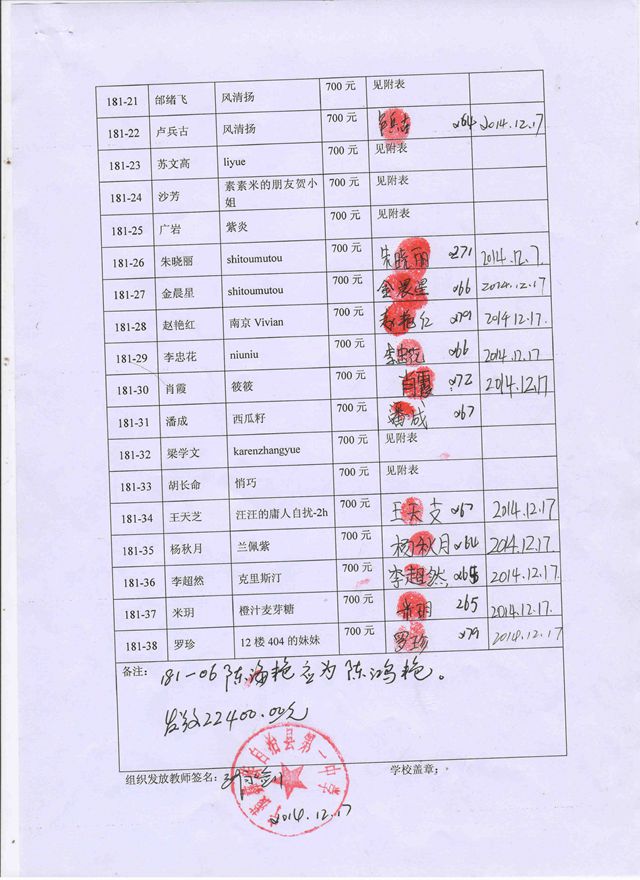 181-21 邰绪飞 风清扬 700 元 见附表
181-22 卢兵古 风清扬 700 元 卢兵古 264 2014.12.17
181-23 苏文高 liyue 700 元 见附表
181-24 沙芳 素素米的朋友贺小姐 700 元 见附表
181-25 广岩 紫炎 700 元 见附表
181-26 朱晓丽 shitoumutou 700 元 朱晓丽 271 2014.12.7.
181-27 金晨星 shitoumutou 700 元 金晨星 266 2014.12.17
181-28 赵艳红 南京 Vivian 700 元 赵艳红 279 2014.12.17.
181-29 李忠花 niuniu 700 元 李忠花 266 2014.12.17
181-30 肖霞 筱筱 700 元 肖霞 272 2014.12.17
181-31 潘成 西瓜籽 700 元 潘成 267
181-32 梁学文 karenzhangyue 700 元 见附表
181-33 胡长命 悄巧 700 元 见附表
181-34 王天芝 汪汪的庸人自扰-2h 700 元 王天支 267 2014.12.17
181-35 杨秋月 兰佩紫 700 元 杨秋月 264 2014.12.17.
181-36 李超然 克里斯汀 700 元 李超然 265 2014.12.17
181-37 米玥 橙汁麦芽糖 700 元 米玥 265 2014.12.17.
181-38 罗珍 12 楼 404 的妹妹 700 元 罗珍 279 2014.12.17
备注： 181-06 陈海艳应为陈鸿艳。
发放22400.00元
组织发放教师签名： 学校盖章：
自治县第一中学
2014.12.17